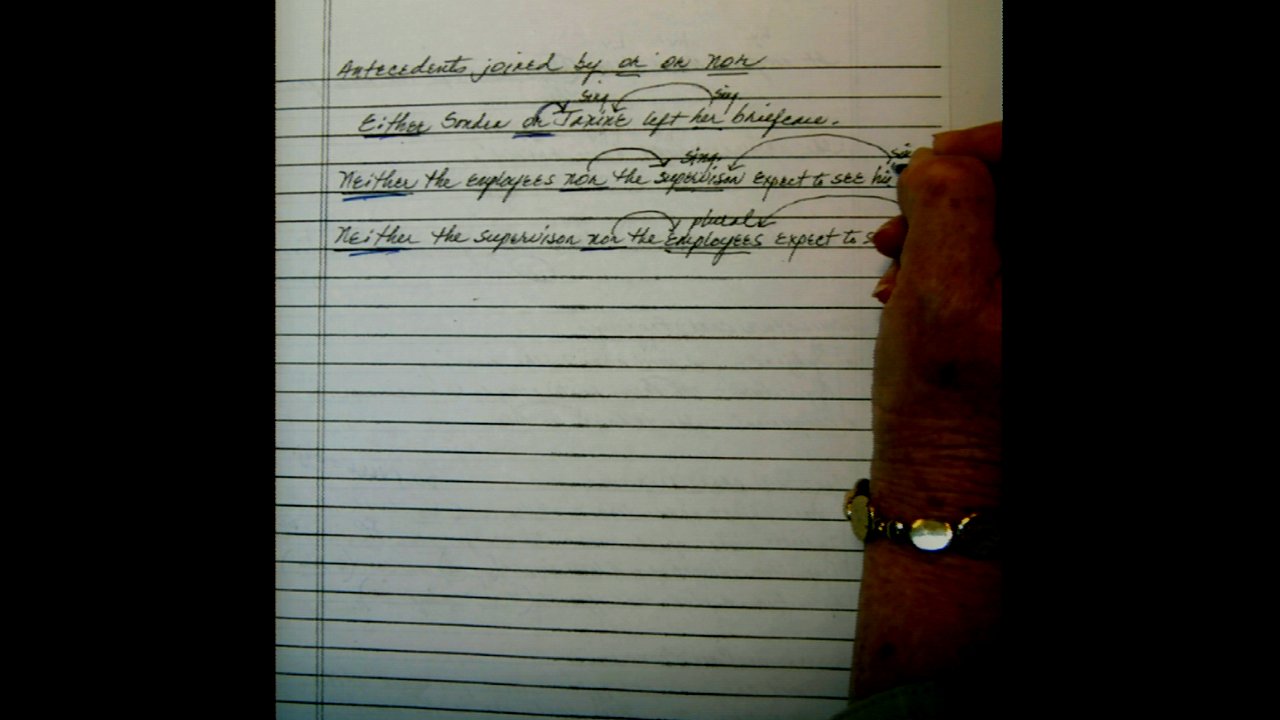 Antecedents joined by or or nor
sing sing
Either Sondra or Janine left her briefcase.
sing. sin
Neither the employees nor the supervisor expect to see his
plural
Neither the supervisor nor the employees expect to s